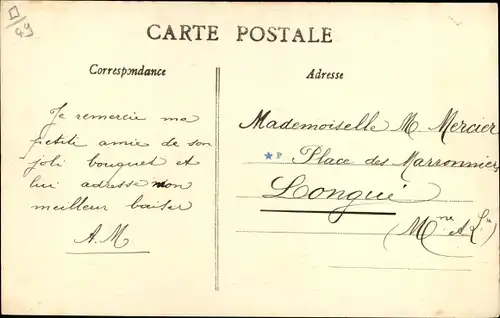 49
CARTE POSTALE
Correspondance
Je remercie ma
petite amie de son
joli bouquet et
lui adresse mon
meilleur baiser
A.M
Adresse
Mademoiselle M. Mercier
Place des Marronniers
Longué
(Mne et L.re)